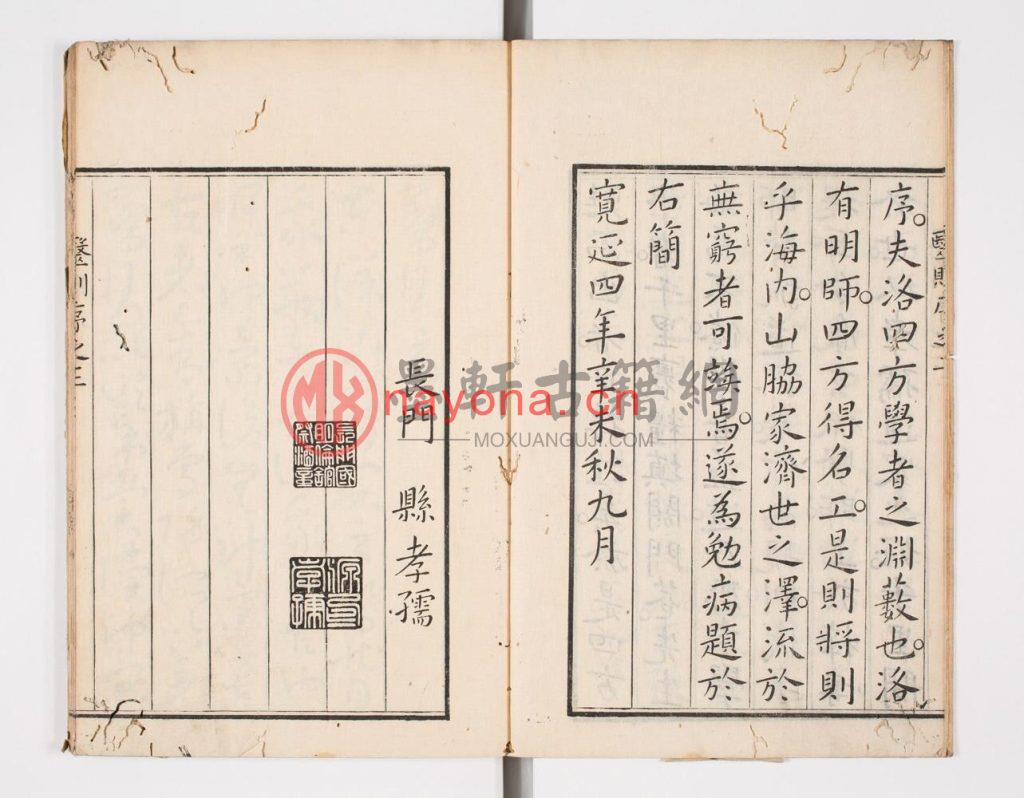 序。夫洛四方學者之淵藪也。洛
有明師。四方得名工。是則將則
乎海内。山脇家濟世之澤。流於
無窮者可幾焉。遂為勉病題於
右簡
寛延四年辛未秋九月
長門 縣孝孺
醫則序之三
墨軒古籍網
nayona.cn
MOXUANGUJI.COM